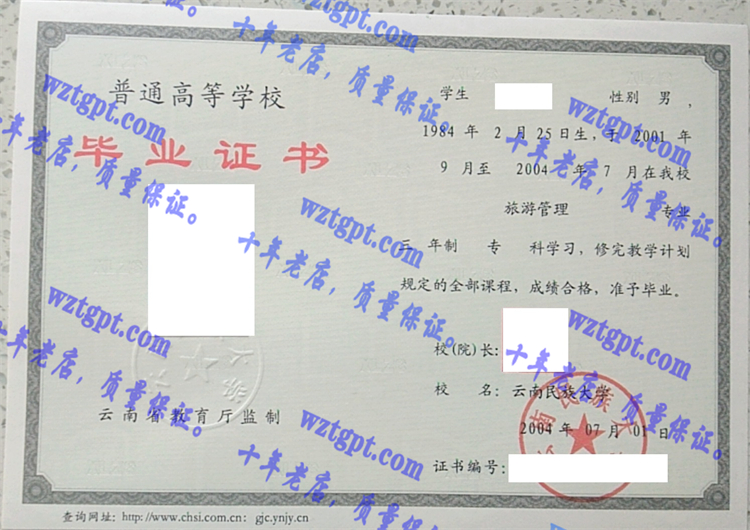 普通高等学校
毕业证书
云南省教育厅监制
学生 性别 男,
1984 年 2 月 25 日生, 于 2001 年
9 月至 2004 年 7 月在我校
旅游管理 专业
三 年制 专 科学习, 修完教学计划
规定的全部课程, 成绩合格, 准予毕业。
校(院)长:
校 名: 云南民族大学
2004 年 07 月 01 日
证书编号:
查询网址: http://www.chsi.com.cn; gjc.ynjy.cn
wztgpt.com
十年老店,质量保证。
wztgpt.com
十年老店,质量保证。
wztgpt.com
十年老店,质量保证。
wztgpt.com
十年老店,质量保证。
wztgpt.com
十年老店,质量保证。
wztgpt.com
十年老店,质量保证。
wztgpt.com
十年老店,质量保证。